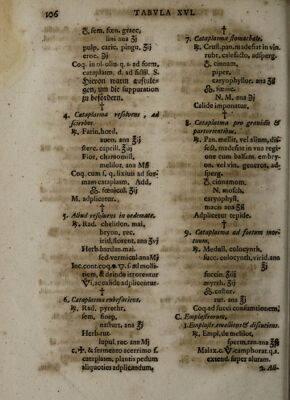 106 TABVLA XVI.
sem. fœn. græc.
lini ana ʒj
pulp. caric. pingu. ℥ij
croc. ℈j
Coq. in ol. oliu. q. s. ad form.
cataplasm. d. ad fictil. S.
gen, um die suppuration
zu befördern.
†
4. Cataplasma resoluens, ad
scirrhos.
℞. Farin. hord.
auen. ana ℥ij
sterc. caprill. ℥iij
Flor. chamomill.
melilot. ana Mß
Coq. cum s. q. lixiuii ad for-
mam cataplasm. Add.
fœniculi ʒij
M. adplicetur.
†
5. Aliud resoluens in oedemate.
℞. Rad. chelidon. mai.
bryon. rec.
irid. florent. ana ʒvj
Herb. bardan. mai.
sed. vermicul. ana Mj
tiem, & deinde irrorentur
, ac calide adplicentur.
†
6. Cataplasma rubefaciens.
℞. Rad. pyrethr.
sem. sinap.
nasturt. ana ℥j
Herb. rut.
lupul. rec. ana Mj
c. & fermento acerrimo f.
cataplasm. plantis pedum
aliquoties adplicandum.
†
7. Cataplasma stomachale.
℞. Crust. pan. madefiat in vin.
rubr. calefacto, adsperg.
cinnam.
piper.
caryophyllor. ana ʒß
N. M. ana ℈j
Calide imponatur.
†
8. Cataplasma pro grauidis &
parturientibus.
℞. Pan. mellit. vel alius, dis-
sect. madefiat in vna regi-
one cum balsam. embry-
on. vel vin. generos. ad-
sperg.
cinnamom.
N. mosch.
caryophyll.
macis ana ʒß
Adplicetur tepide.
†
9. Cataplasma ad foetum mor-
tuum.
℞. Medull. colocynth.
succ. colocynth. virid. ana
℥j
succin. ʒiij
myrrh. ʒij
castor.
rut. ana ʒj
Coq. ad succi consumtionem.
C. Emplastrorum.
1. Emplastr. emolliens & discutiens.
℞. Empl. de melilot.
sperm. ran. ana ℥ß
Malax. c. camphorat. q. s.
extend. super alutam.
2. Ali-